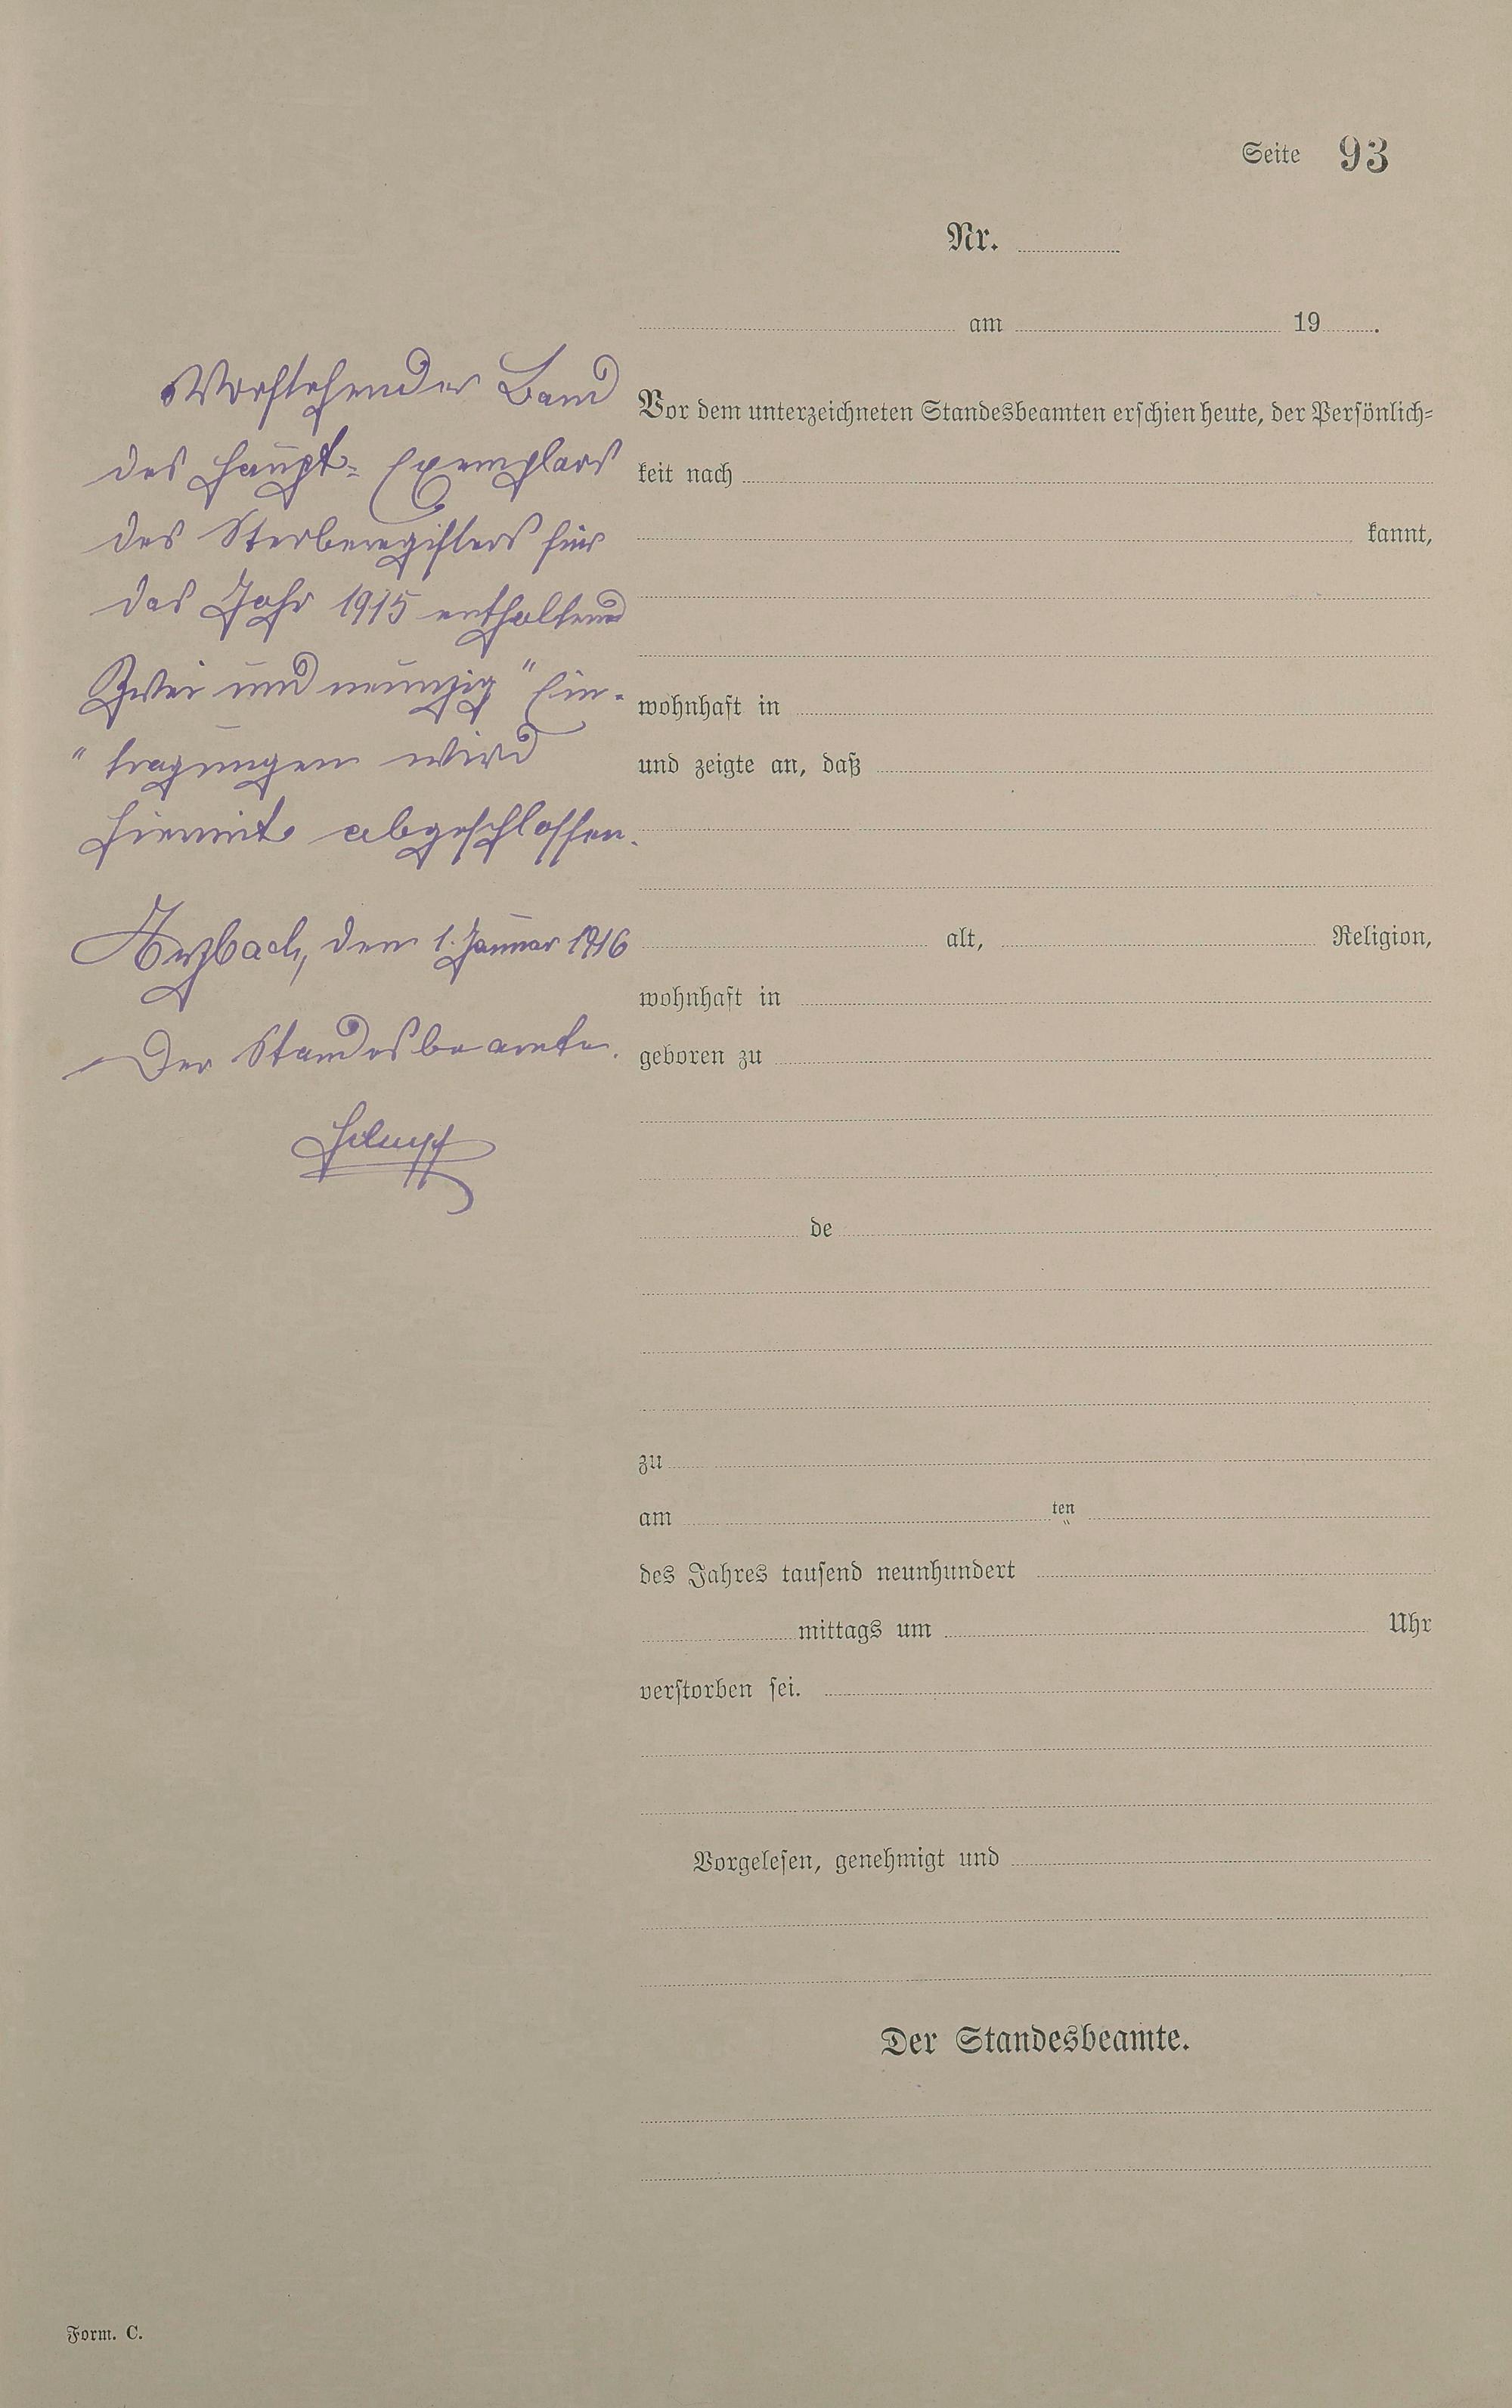 Seite 93
Nr.
am 19 .
Vorstehender Band
des Haupt- Exemplars
des Sterberegisters für
das Jahr 1915 enthaltend
Zwei und neunzig "Ein-
" tragungen wird
hiermit abgeschlossen.
Arzbach, den 1. Januar 1916
Der Standesbeamte.
Vor dem unterzeichneten Standesbeamten erschien heute, der Persönlich-
keit nach
kannt,
wohnhaft in
und zeigte an, daß
alt, Religion,
wohnhaft in
geboren zu
de
zu
am ten
des Jahres tausend neunhundert
mittags um Uhr
verstorben sei.
Vorgelesen, genehmigt und
Der Standesbeamte.
Form. C.